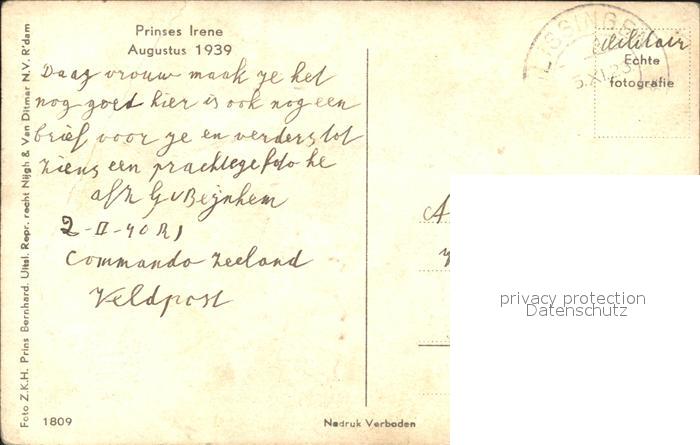 Prinses Irene
Augustus 1939
Daag vrouw maak je het
nog goed hier is ook nog een
brief voor je en verders tot
ziens een prachtige foto he
afz G v Beijnhem
2-II-40 R1
Commando Zeeland
Veldpost
Foto Z.K.H. Prins Bernhard. Uitsl. Repr. recht Nijgh & Van Ditmar N.V. R'dam
1809
Nadruk Verboden
Militair
Echte
fotografie
LISSINGE
5.XI.23
privacy protection
Datenschutz